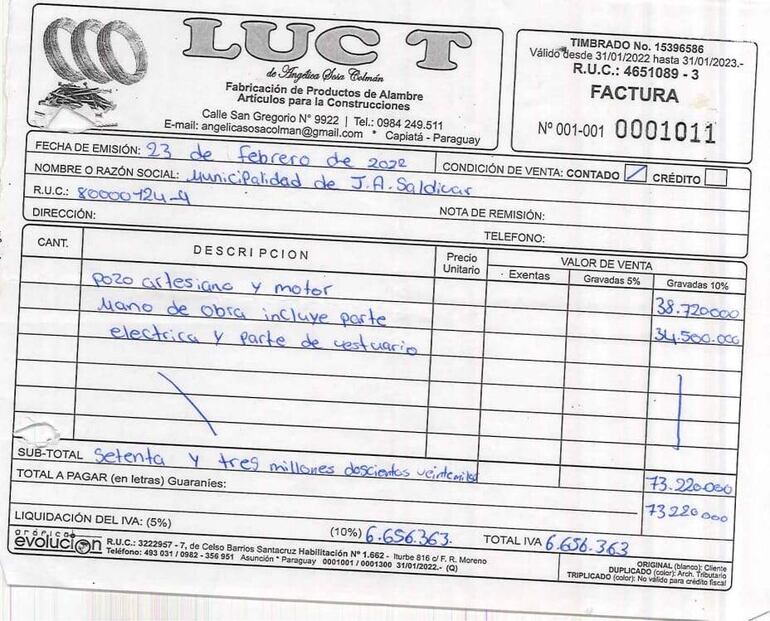 LUC T
de Angélica Sosa Colmán
Fabricación de Productos de Alambre
Artículos para la Construcciones
Calle San Gregorio N° 9922 | Tel.: 0984 249.511
E-mail: angelicasosacolman@gmail.com * Capiatá - Paraguay
TIMBRADO No. 15396586
Válido desde 31/01/2022 hasta 31/01/2023.-
R.U.C.: 4651089 - 3
FACTURA
Nº 001-001 0001011
FECHA DE EMISIÓN: 23 de febrero de 2022
CONDICIÓN DE VENTA: CONTADO CRÉDITO
NOMBRE O RAZÓN SOCIAL: Municipalidad de J.A. Saldivar
R.U.C.: 80000724-9
NOTA DE REMISIÓN:
DIRECCIÓN:
TELEFONO:
CANT. DESCRIPCION Precio Unitario VALOR DE VENTA
Exentas Gravadas 5% Gravadas 10%
pozo artesiano y motor 38.720000
Mano de obra incluye parte
electrica y parte de vestuario 34.500.000
SUB-TOTAL setenta y tres millones doscientos veintemil 73.220.000
TOTAL A PAGAR (en letras) Guaraníes: 73220000
LIQUIDACIÓN DEL IVA: (5%) (10%) 6.656.363. TOTAL IVA 6.656.363
gráfica evolución
R.U.C.: 3222957 - 7, de Celso Barrios Santacruz Habilitación Nº 1.662 - Iturbe 816 c/ F. R. Moreno
Teléfono: 493 031 / 0982 - 356 951 Asunción * Paraguay 0001001 / 0001300 31/01/2022.- (Q)
ORIGINAL (blanco): Cliente
DUPLICADO (color): Arch. Tributario
TRIPLICADO (color): No válido para crédito fiscal